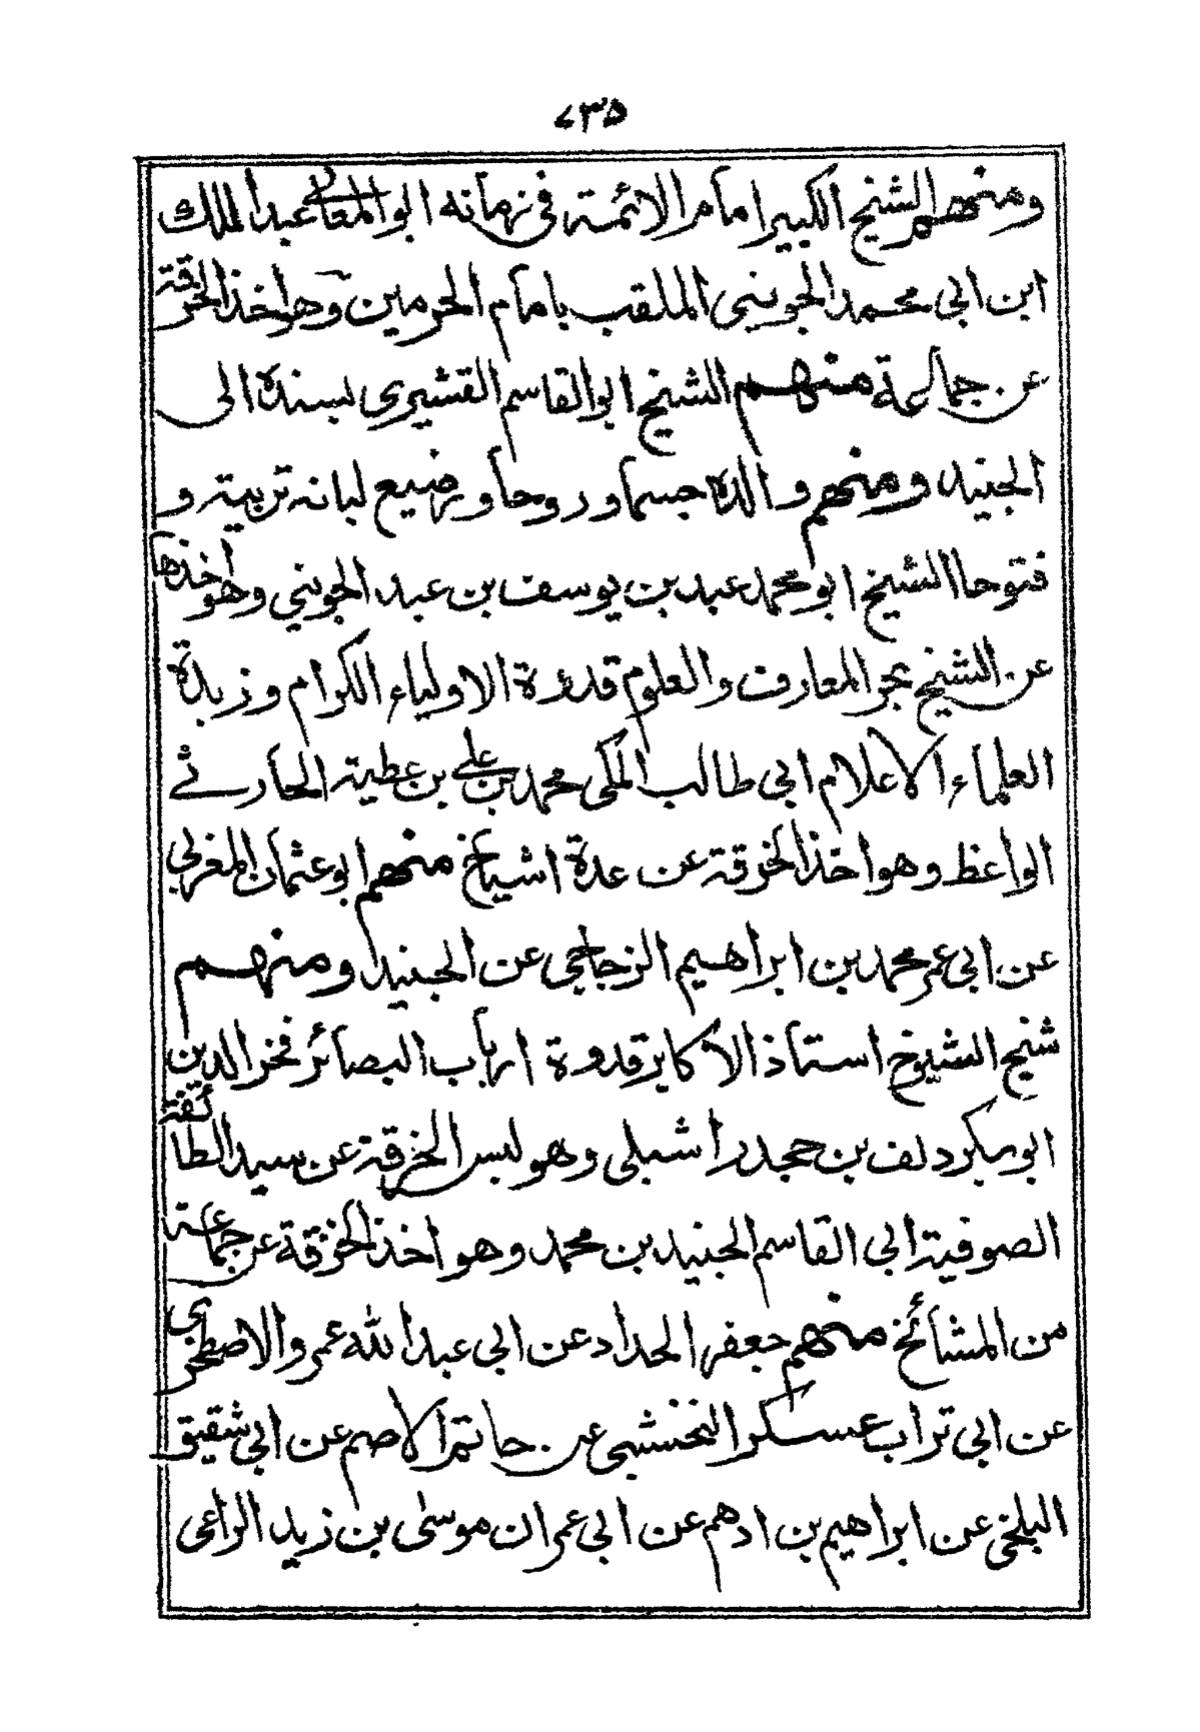 ٧٣٥
ومنهم الشيخ الكبير امام الائمة في زمانه ابو المعالي عبد الملك
ابن ابي محمد الجويني الملقب بامام الحرمين وهو اخذ الخرقة
عن جماعة منهم الشيخ ابو القاسم القشيري بسنده الى
الجنيد ومنهم والده جسما وروحا ورضيع لبانه تربية و
فتوحا الشيخ ابو محمد عبد بن يوسف بن عبد الجويني وهو اخذها
عن الشيخ بحر المعارف والعلوم قدوة الاولياء الكرام وزبدة
العلماء الاعلام ابي طالب المكي محمد بن علي بن عطية الحارثي
الواعظ وهو اخذ الخرقة عن عدة اشياخ منهم ابو عثمان المغربي
عن ابي عمر محمد بن ابراهيم الزجاجي عن الجنيد ومنهم
شيخ الشيوخ استاذ الاكابر قدوة ارباب البصائر فخر الدين
ابو بكر دلف بن حجدر اشبلى وهو لبس الخرقة عن سيد الطائفة
الصوفية ابي القاسم الجنيد بن محمد وهو اخذ الخرقة عن جماعة
من المشائخ منهم جعفر الحداد عن ابي عبد الله عمرو الاصطخرى
عن ابي تراب عسكر النخشبى عن حاتم الاصم عن ابي شقيق
البلخي عن ابراهيم بن ادهم عن ابي عمران موسى بن زيد الراعى